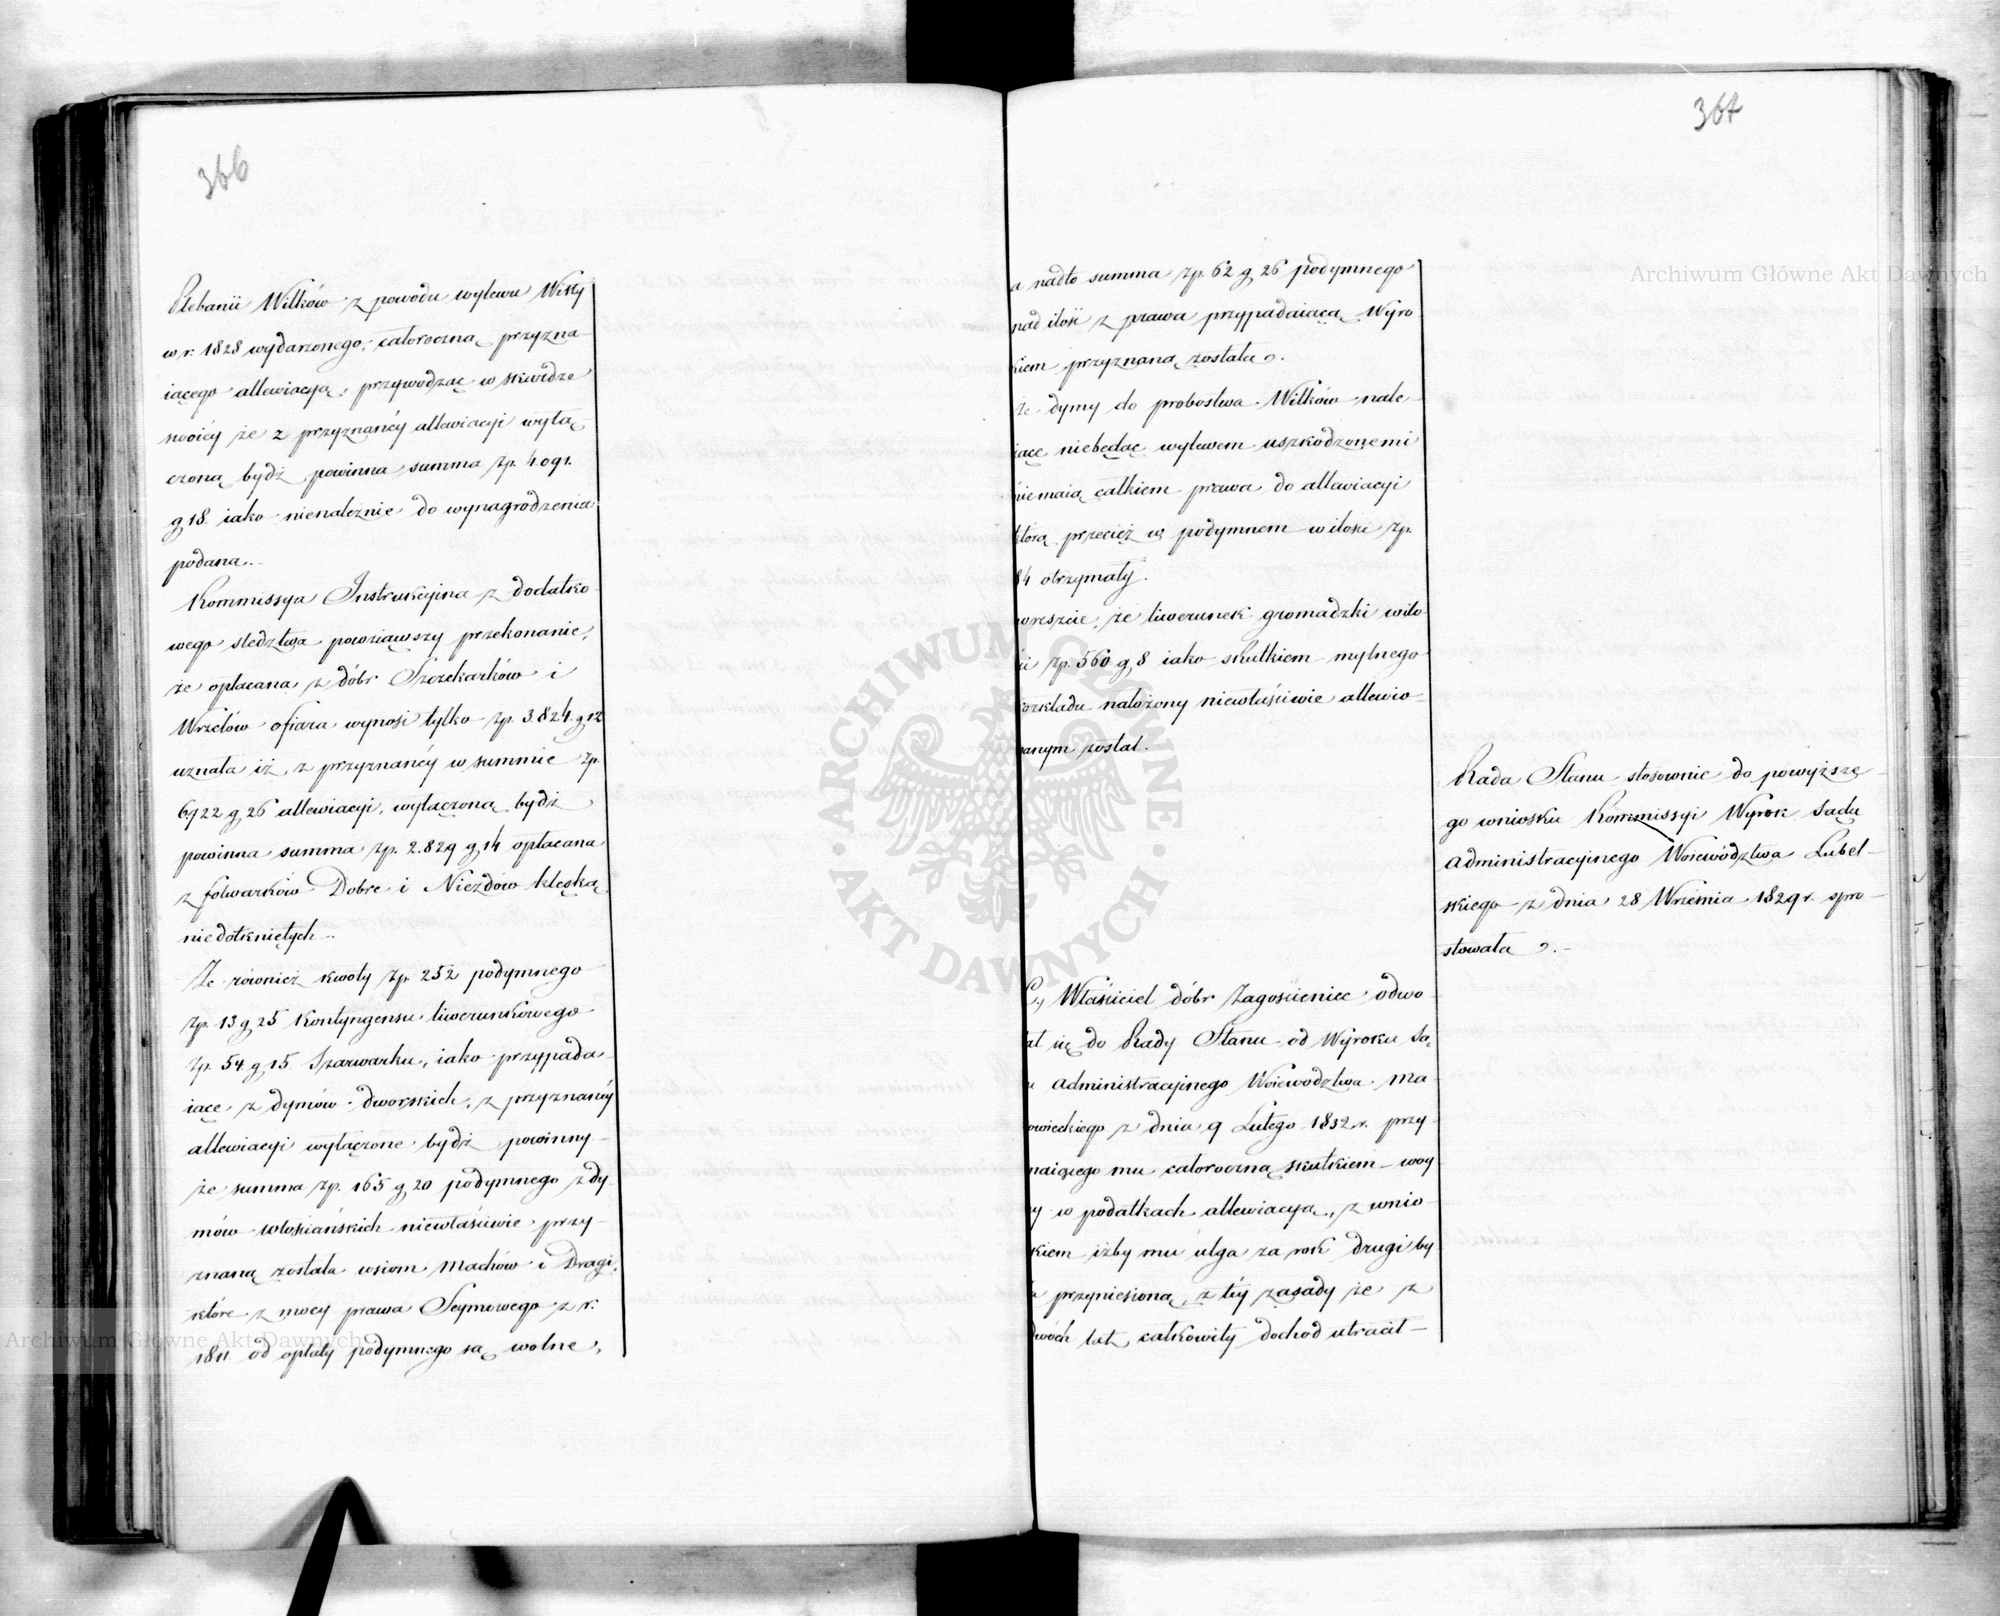 366
Plebanii Wilków z powodu wylewu Wisły
w r. 1828 wydarzonego, całoroczną przyzna
iącego allewiacyą, przywodząc w skardze
swoiéy że z przyznanéy allewiacyi wyłą
czoną bydź powinna summa Zp. 4.091.
g 18. iako nienależnie do wynagrodzenia
podana.
Kommissya Instrukcyjna z dodatko
wego śledztwa powziąwszy przekonanie,
że opłacana z dóbr Szczekarków i
Wrzelów ofiara wynosi tylko Zp. 3.824. g 12
uznała iż z przyznanéy w summie Zp.
6922 g 26 allewiacyi, wyłączoną bydź
powinna summa Zp. 2.829 g 14 opłacana
z folwarków Dobre i Niezdów klęską
niedotkniętych.
Że również kwoty Zp. 252 podymnego
Zp. 13 g 25 Kontyngensu liwerunkowego
Zp. 54 g 15. Szarwarku, iako przypada
iące z dymów dworskich, z przyznanéy
allewiacyi wyłączone bydź powinny
że summa Zp. 165 g 20 podymnego z dy
mów włościańskich niewłaściwie przy
znaną została wsiom Machów i Dragi,
które z mocy prawa Seymowego z r.
1811 od opłaty podymnego są wolne,
367
a nadto summa Zp. 62 g 26 podymnego
nad ilość z prawa przypadaiącą Wyro
kiem przyznaną została.
że dymy do probostwa Wilków nale
żące niebędąc wylewem uszkodzonemi
niemaią całkiem prawa do allewiacyi
którą przecież w podymnem w ilości Zp.
84 otrzymały.
wreszcie, że liwerunek gromadzki w ilo
ści Zp. 560 g 8 iako skutkiem mylnego
rozkładu nałożony niewłaściwie allewio
wanym został.
Rada Stanu stosownie do powyższe
go wniosku Kommissyi Wyrok Sądu
Administracyjnego Woiewództwa Lubel
skiego z dnia 28 Września 1829 r. spro
stowała.
Właściciel dóbr Zagościeniec odwo
łał się do Rady Stanu od Wyroku Są
du Administracyjnego Woiewództwa Ma
zowieckiego z dnia 9 Lutego 1832 r. przy
znaiącego mu całoroczną skutkiem woy
ny w podatkach allewiacyą, z wnio
skiem iżby mu ulga za rok drugi by
ła przyniesioną z téy zasady że z
dwóch lat całkowity dochód utracił
Archiwum Główne Akt Dawnych
ARCHIWUM GŁÓWNE · AKT DAWNYCH ·
Archiwum Główne Akt Dawnych